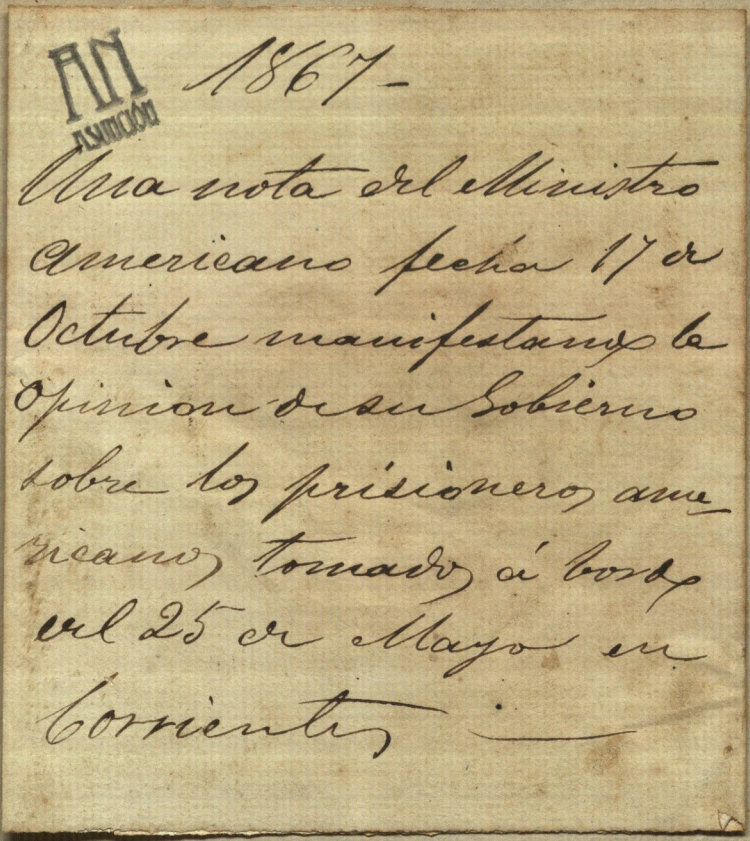 AN
ASUNCIÓN
1867-
Una nota del Ministro
Americano fecha 17 de
Octubre manifestando la
opinion de su Gobierno
sobre los prisioneros ame-
ricanos tomados á bordo
del 25 de Mayo en
Corrientes